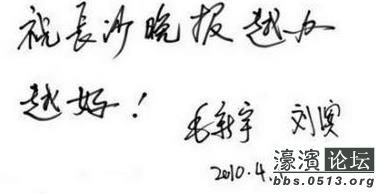 祝长沙晚报越办
越好！
毛新宇 刘滨
2010.4.
濠滨论坛
bbs.0513.org